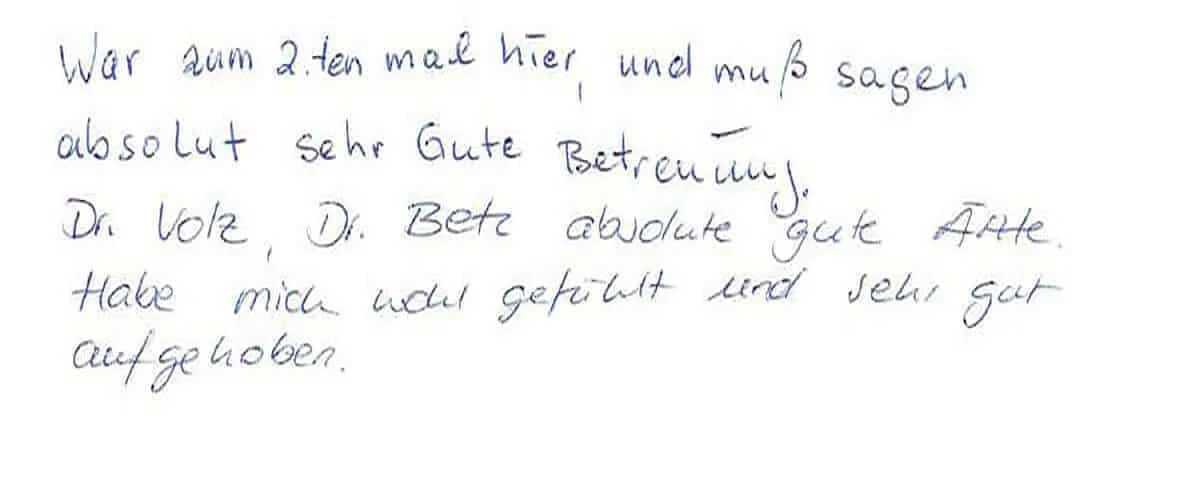 War zum 2.ten mal hier, und muß sagen
absolut sehr Gute Betreuung.
Dr. Volz, Dr. Betz absolute gute Ärzte.
Habe mich wohl gefühlt und sehr gut
aufgehoben.